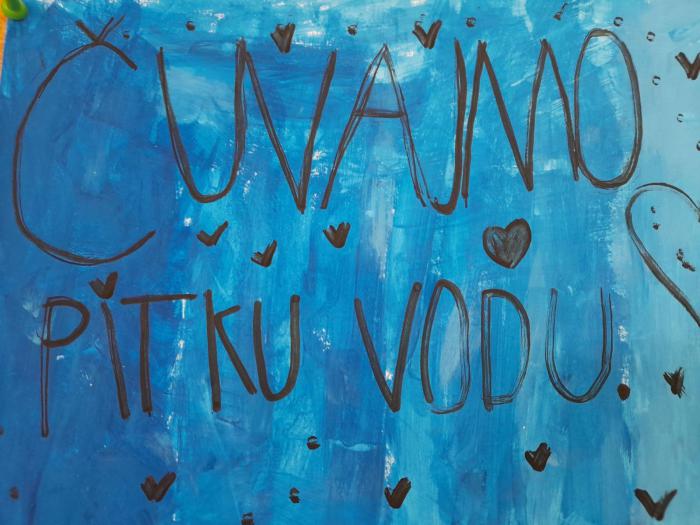 ČUVAJMO
PITKU VODU.